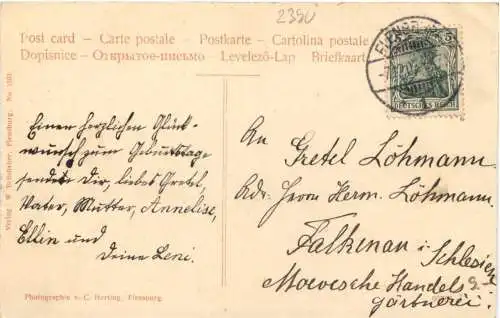 2350
Post card – Carte postale – Postkarte – Cartolina postale
Dopisnice – Открытое-письмо – Levelező-Lap – Briefkaart
FLENSB
5
DEUTSCHES REICH
Einen herzlichen Glück-
wunsch zum Geburtstage
sendet Dir, liebes Gretel,
Vater, Mutter, Annelise,
Ellin und
Deine Leni.
An
Gretel Löhmann
Adr. Herrn Herm. Löhmann.
Falkenau i. Schlesien
Moewesche Handels
gärtnerei
Verlag W. Flensburg. No.
Photographie v. C. Herting, Flensburg.